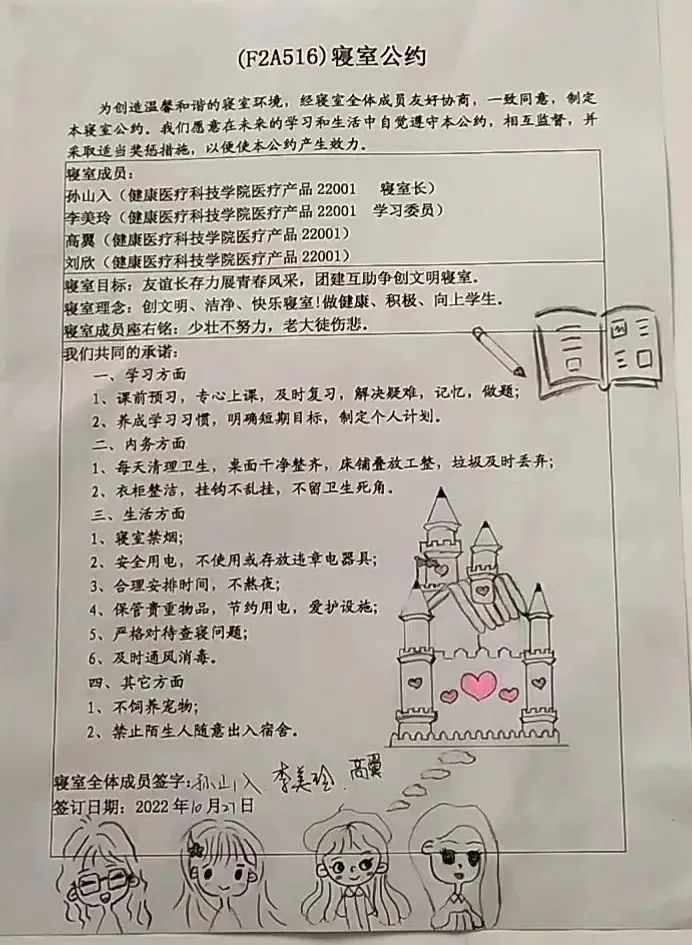 (F2A516)寝室公约
为创造温馨和谐的寝室环境，经寝室全体成员友好协商，一致同意，制定
本寝室公约。我们愿意在未来的学习和生活中自觉遵守本公约，相互监督，并
采取适当奖惩措施，以便使本公约产生效力。
寝室成员：
孙山入（健康医疗科技学院医疗产品 22001 寝室长）
李美玲（健康医疗科技学院医疗产品 22001 学习委员）
高翼（健康医疗科技学院医疗产品 22001）
刘欣（健康医疗科技学院医疗产品 22001）
寝室目标：友谊长存力展青春风采，团建互助争创文明寝室。
寝室理念：创文明、洁净、快乐寝室!做健康、积极、向上学生。
寝室成员座右铭：少壮不努力，老大徒伤悲。
我们共同的承诺：
一、学习方面
1、课前预习，专心上课，及时复习，解决疑难，记忆，做题；
2、养成学习习惯，明确短期目标，制定个人计划。
二、内务方面
1、每天清理卫生，桌面干净整齐，床铺叠放工整，垃圾及时丢弃；
2、衣柜整洁，挂钩不乱挂，不留卫生死角。
三、生活方面
1、寝室禁烟；
2、安全用电，不使用或存放违章电器具；
3、合理安排时间，不熬夜；
4、保管贵重物品，节约用电，爱护设施；
5、严格对待查寝问题；
6、及时通风消毒。
四、其它方面
1、不饲养宠物；
2、禁止陌生人随意出入宿舍。
寝室全体成员签字：孙山入 李美玲 高翼
签订日期：2022 年10月27日